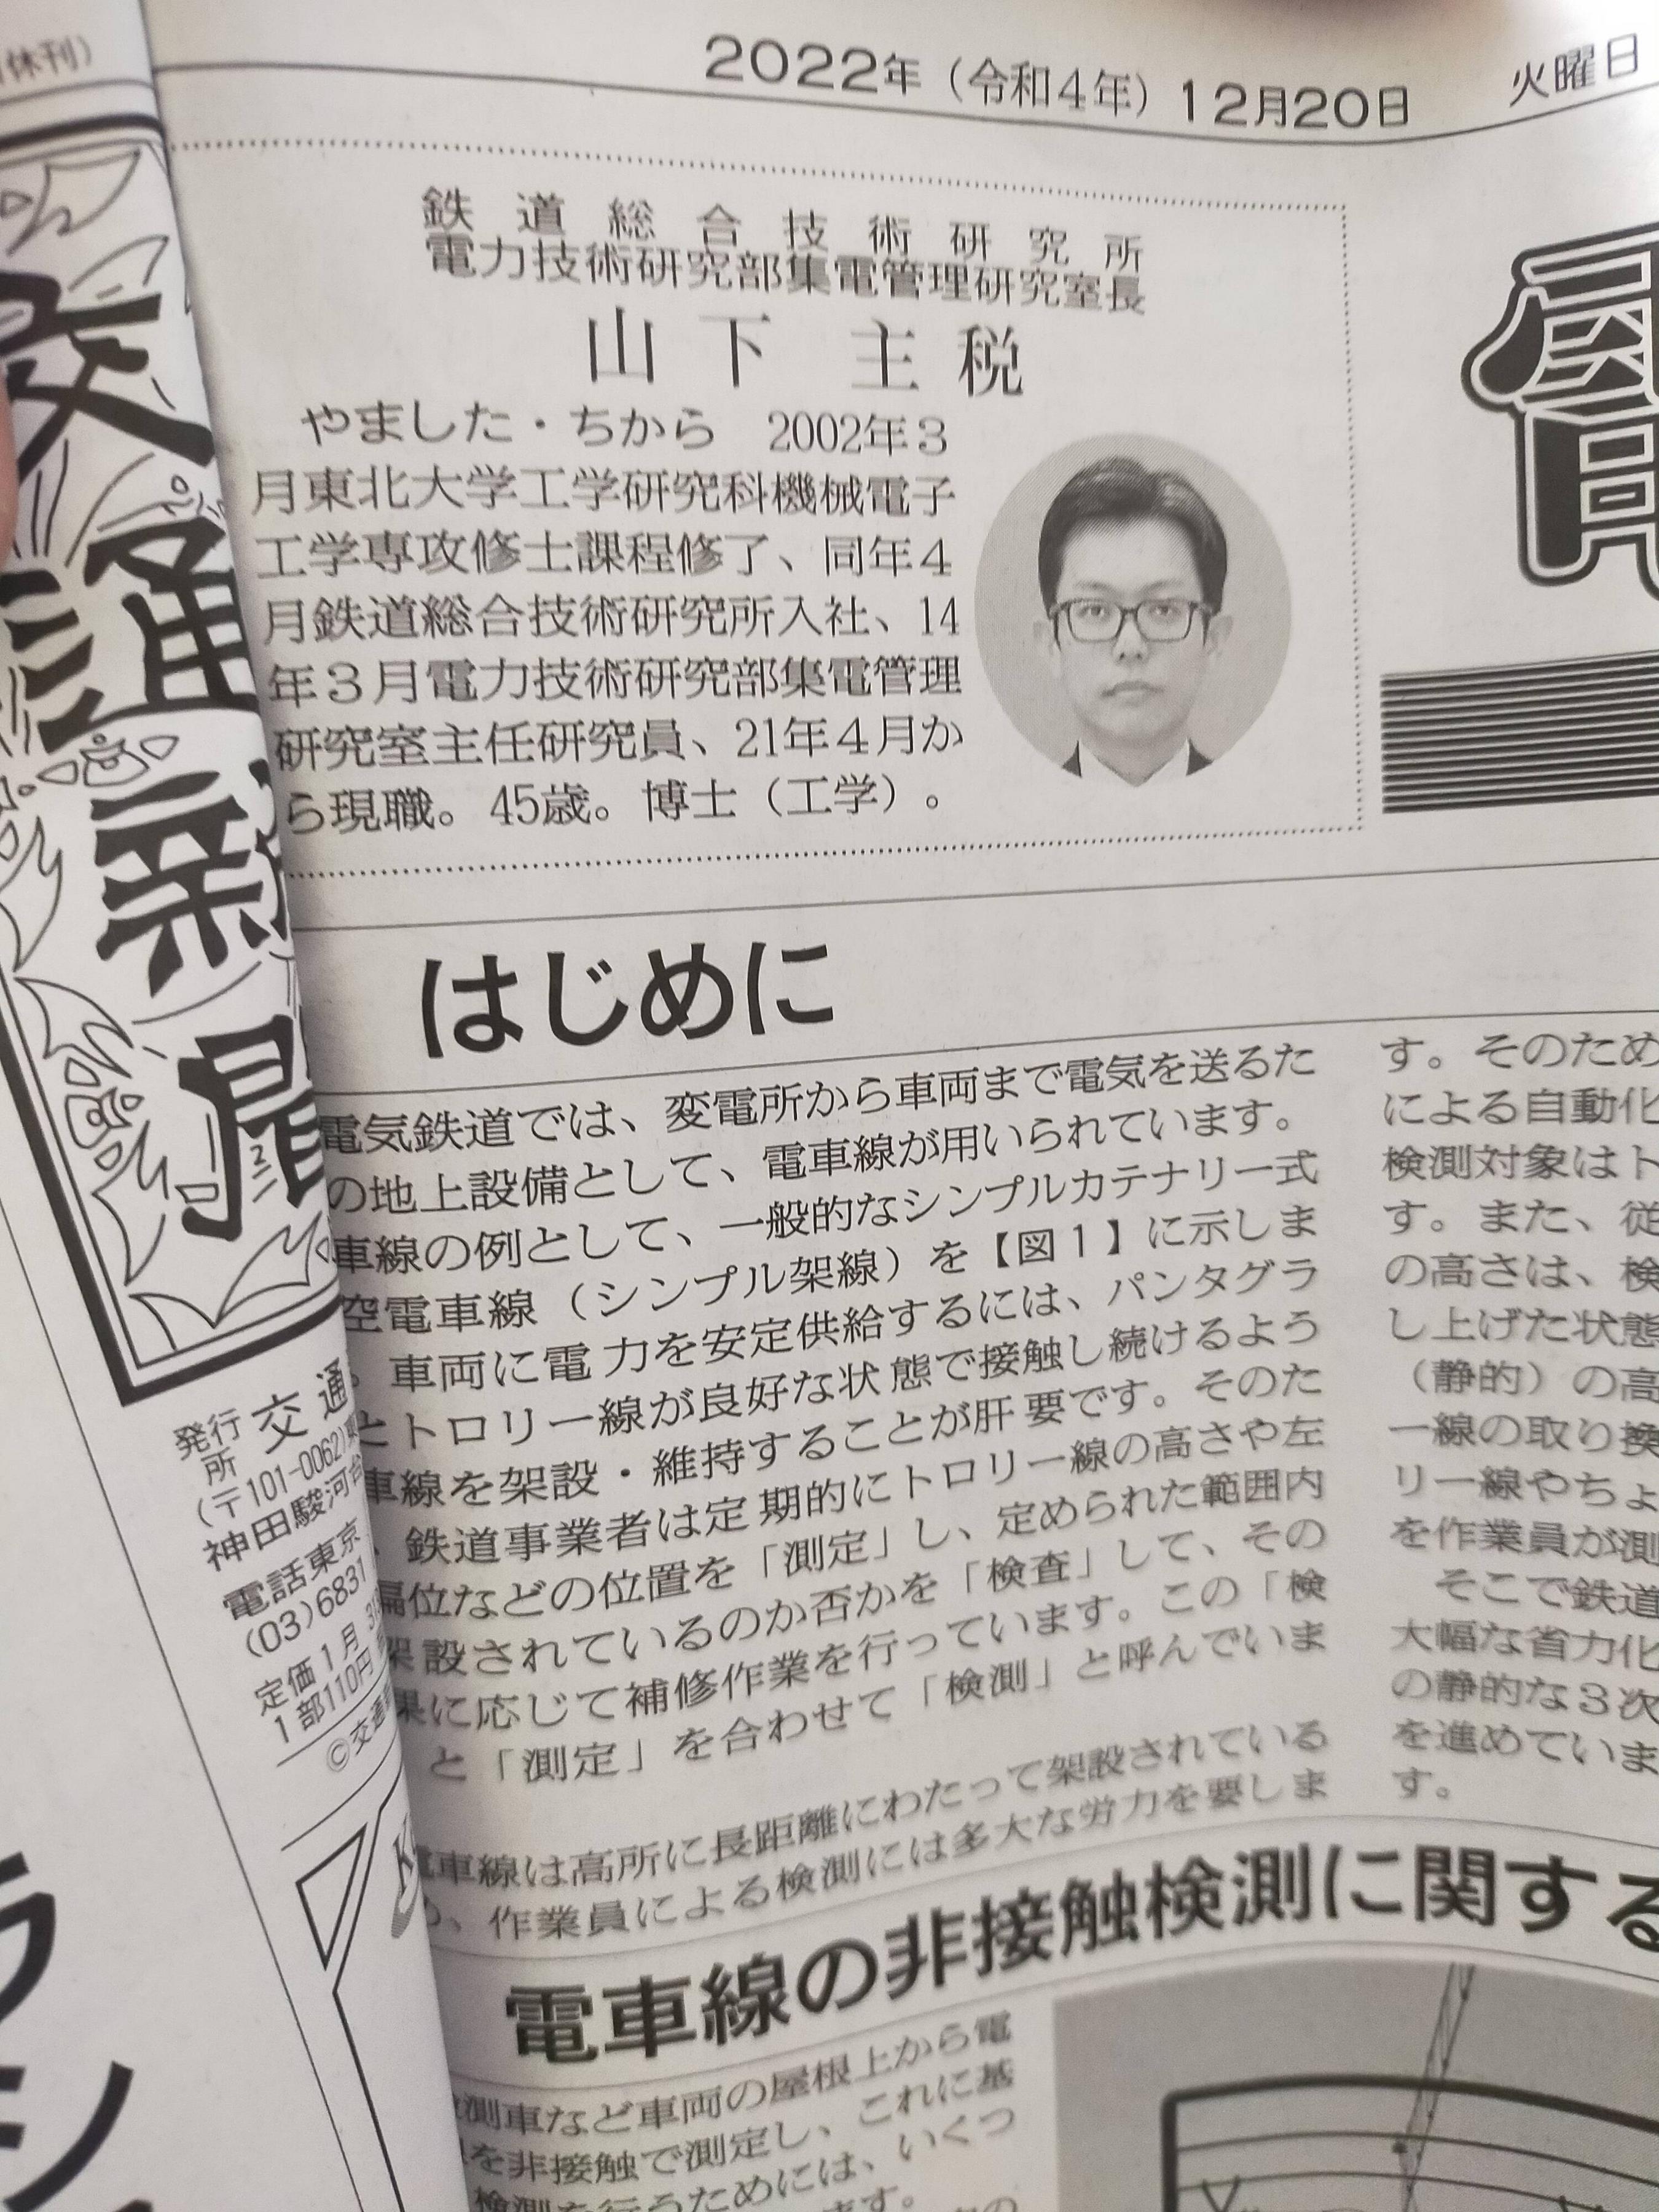 休刊）
交通新聞
発行所 交通
（〒101-0062）
神田駿河台
電話東京
（03）6831
定価1月
1部110円
©交通
2022年（令和4年）12月20日 火曜日
鉄道総合技術研究所
電力技術研究部集電管理研究室長
山下 主税
やました・ちから 2002年3
月東北大学工学研究科機械電子
工学専攻修士課程修了、同年4
月鉄道総合技術研究所入社、14
年3月電力技術研究部集電管理
研究室主任研究員、21年4月か
ら現職。45歳。博士（工学）。
はじめに
電気鉄道では、変電所から車両まで電気を送るた
の地上設備として、電車線が用いられています。
車線の例として、一般的なシンプルカテナリー式
空電車線（シンプル架線）を【図1】に示しま
。車両に電力を安定供給するには、パンタグラ
とトロリー線が良好な状態で接触し続けるよう
車線を架設・維持することが肝要です。そのた
、鉄道事業者は定期的にトロリー線の高さや左
偏位などの位置を「測定」し、定められた範囲内
架設されているのか否かを「検査」して、その
果に応じて補修作業を行っています。この「検
と「測定」を合わせて「検測」と呼んでいま
電車線は高所に長距離にわたって架設されている
、作業員による検測には多大な労力を要しま
す。そのため
による自動化
検測対象はト
す。また、従
の高さは、検
し上げた状態
（静的）の高
ー線の取り換
リー線やちょ
を作業員が測
そこで鉄道
大幅な省力化
の静的な3次
を進めていま
す。
電車線の非接触検測に関する
測車など車両の屋根上から電
を非接触で測定し、これに基
検測を行うためには、いくつ
ます。